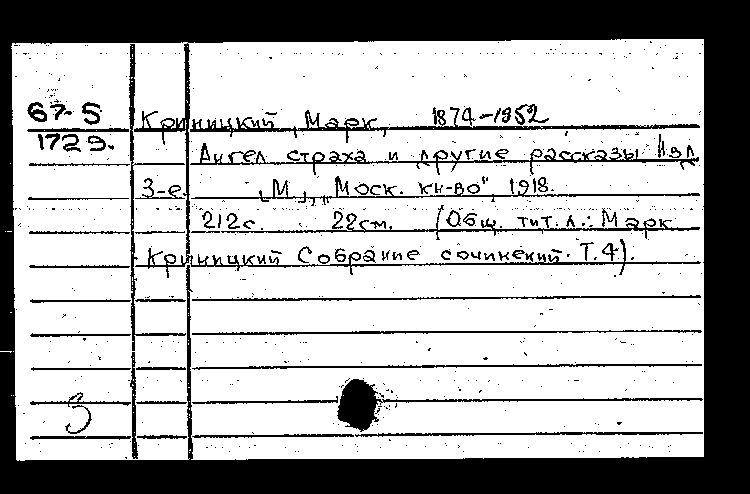 67-5
Криницкий, Марк, 1874-1952
1729.
Ангел страха и другие рассказы Изд.
3-е. [М.], „Моск. кн-во", 1918.
212с. 22см. (Общ. тит. л.: Марк
Криницкий Собрание сочинений. Т.4).
3